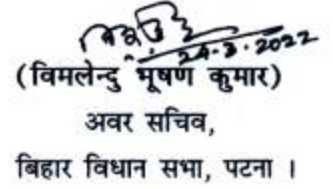 24-3-2022
(विमलेन्दु भूषण कुमार)
अवर सचिव,
बिहार विधान सभा, पटना ।